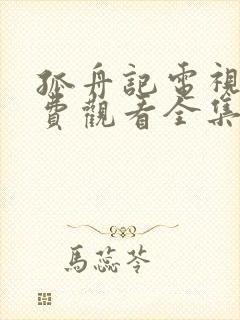 孤舟記電視
費觀看全集
馬蕊苓